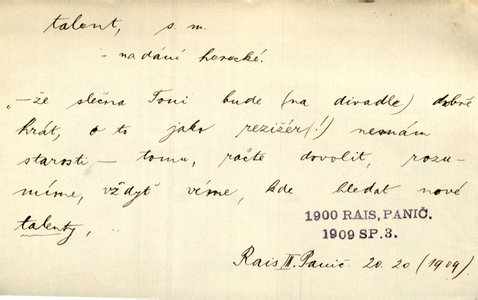 talent, s. m.
- nadání herecké.
„—že slečna Toni bude (na divadle) dobře
hrát, o to jako režižér(!) neznám
starosti — tomu, račte dovolit, rozu-
míme, vždyť víme, kde hledat nové
talenty, ..
1900 RAIS, PANIČ.
1909 SP. 3.
Rais II. Panič. 20. 20 (1909)